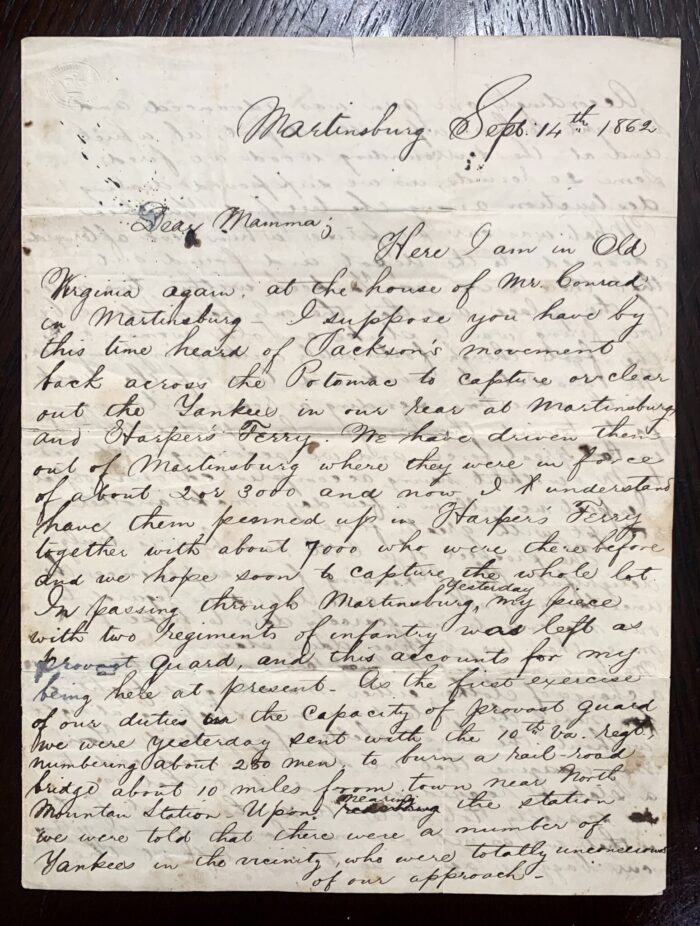 Martinsburg. Sept. 14th 1862
Dear Mamma;
Here I am in Old
Virginia again, at the house of Mr. Conrad
in Martinsburg - I suppose you have by
this time heard of Jackson's movement
back across the Potomac to capture or clear
out the Yankees in our rear at Martinsburg
and Harper's Ferry. We have driven them
out of Martinsburg where they were in force
of about 2 or 3000 and now I understand
have them penned up in Harper's Ferry
together with about 7000 who were there before
and we hope soon to capture the whole lot.
In passing through Martinsburg, yesterday my piece
with two regiments of infantry was left as
provost guard, and this accounts for my
being here at present - As the first exercise
of our duties in the capacity of provost guard
we were yesterday sent with the 10th Va. regt,
numbering about 250 men, to burn a rail-road
bridge about 10 miles from town near North
Mountan Station. Upon nearing the station
we were told that there were a number of
Yankees in the vicinity, who were totally unconscious
of our approach -